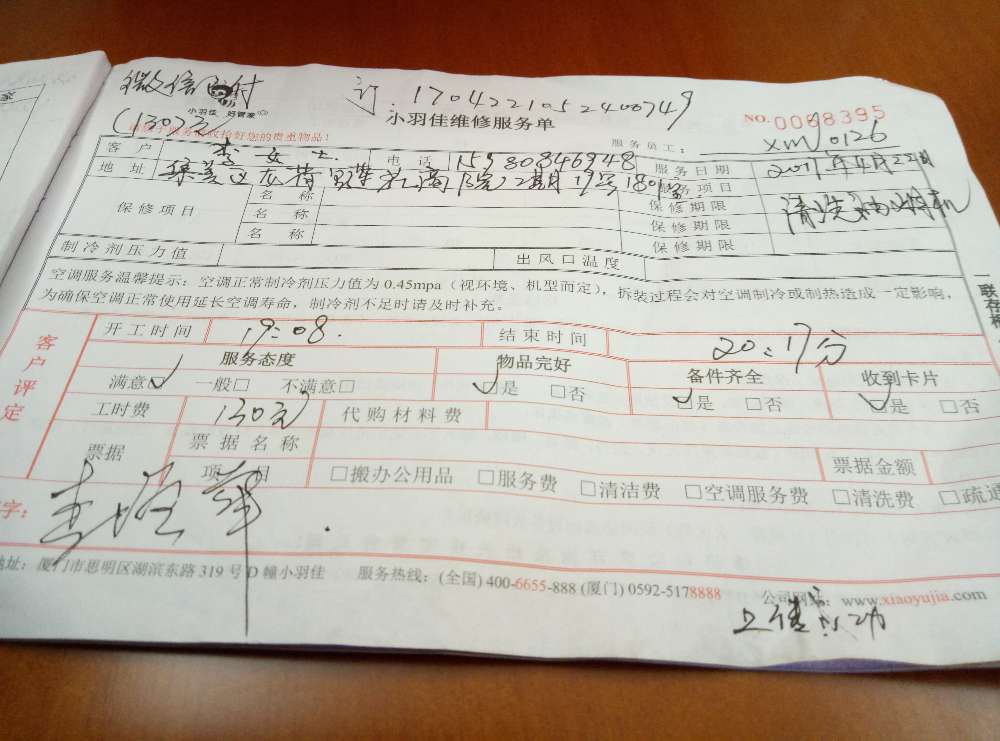 微信支付
订:1704221052400749
小羽佳 好管家
小羽佳维修服务单
NO.0068395
(130元)
收拾好您的贵重物品!
服务员工: xm0126
客户 李女士 电话 15980846948 服务日期 2017年4月22日
地址 集美区 19号180 服务项目 清洗油烟机
保修项目
名称 保修期限
名称 保修期限
名称 保修期限
制冷剂压力值 出风口温度
空调服务温馨提示:空调正常制冷剂压力值为0.45mpa(视环境、机型而定),拆装过程会对空调制冷或制热造成一定影响,
为确保空调正常使用延长空调寿命,制冷剂不足时请及时补充。
一联存根
客户评定
开工时间 19:08. 结束时间 20:17分
服务态度 物品完好 备件齐全 收到卡片
满意☑ 一般□ 不满意□ ☑是 □否 ☑是 □否 ☑是 □否
工时费 130元 代购材料费
票据 票据名称 票据金额
项目 □搬办公用品 □服务费 □清洁费 □空调服务费 □清洗费 □疏通
字:
地址:厦门市思明区湖滨东路319号D幢小羽佳 服务热线:(全国)400-6655-888 (厦门)0592-5178888 公司网站:www.xiaoyujia.com